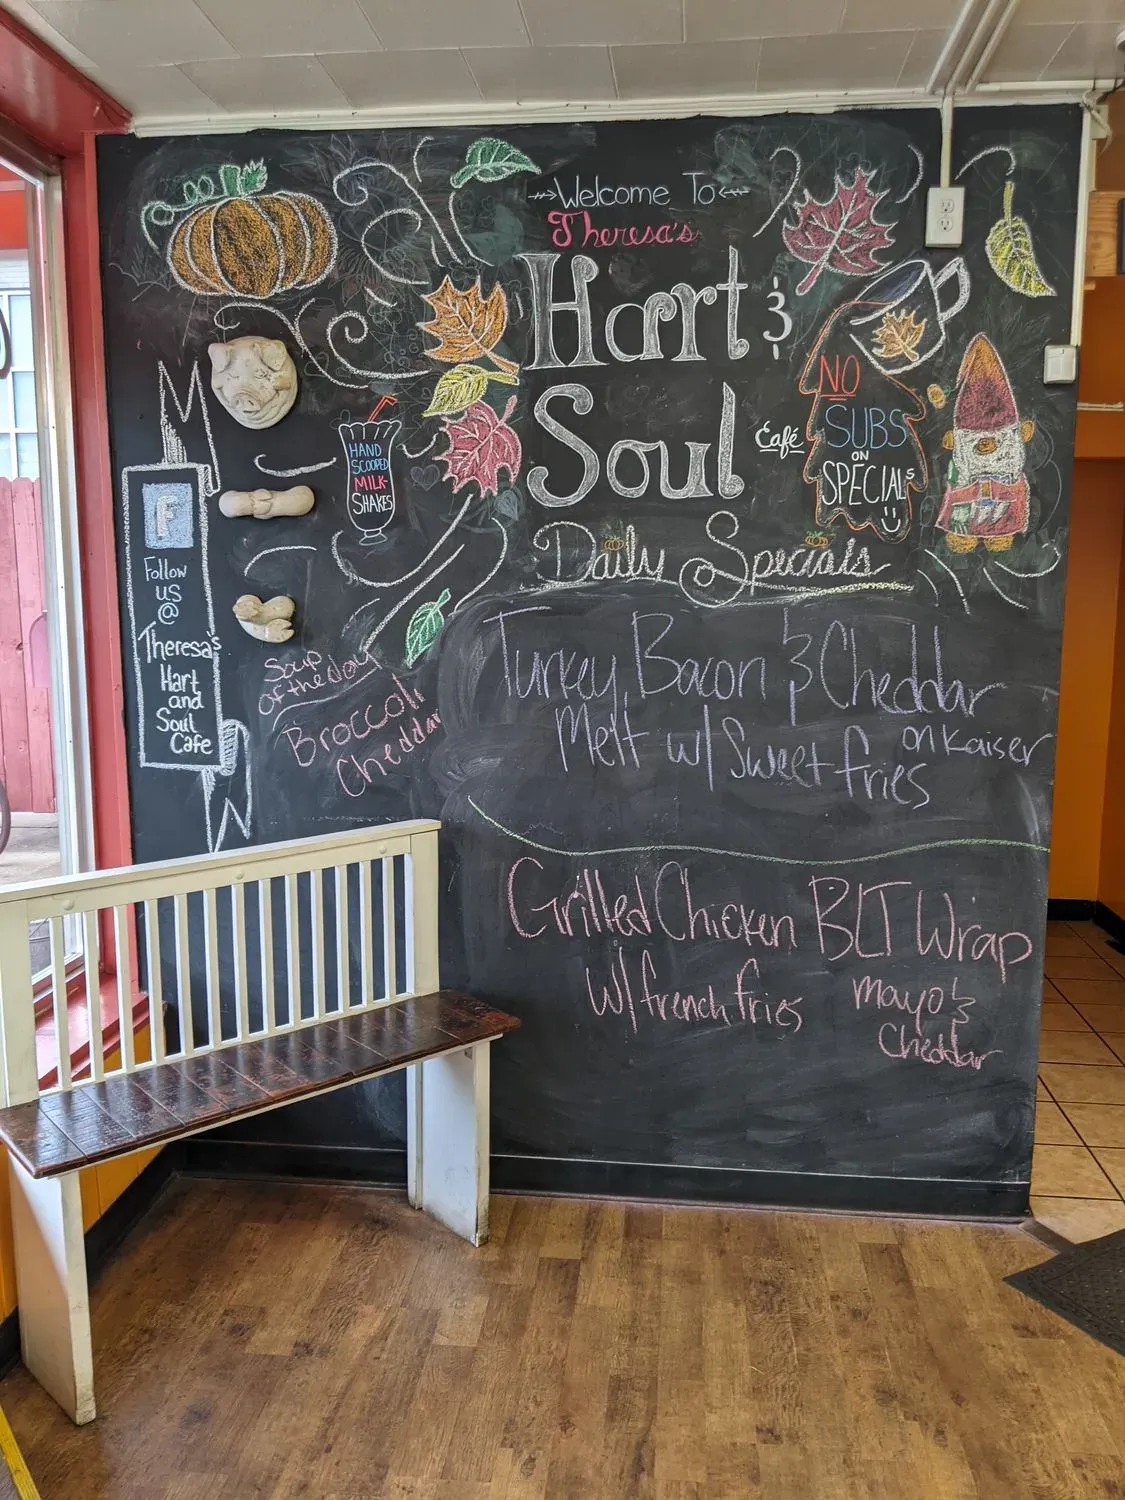 Welcome To
Theresa's
Hart &
Soul
Café
NO
SUBS
ON
SPECIALS
HAND
SCOOPED
MILK-
SHAKES
F
Follow
us
@
Theresa's
Hart
and
Soul
Cafe
Daily Specials
Soup
of the day
Broccoli
Cheddar
Turkey, Bacon & Cheddar
Melt w/ Sweet fries
on Kaiser
Grilled Chicken BLT Wrap
w/ french fries
mayo &
Cheddar